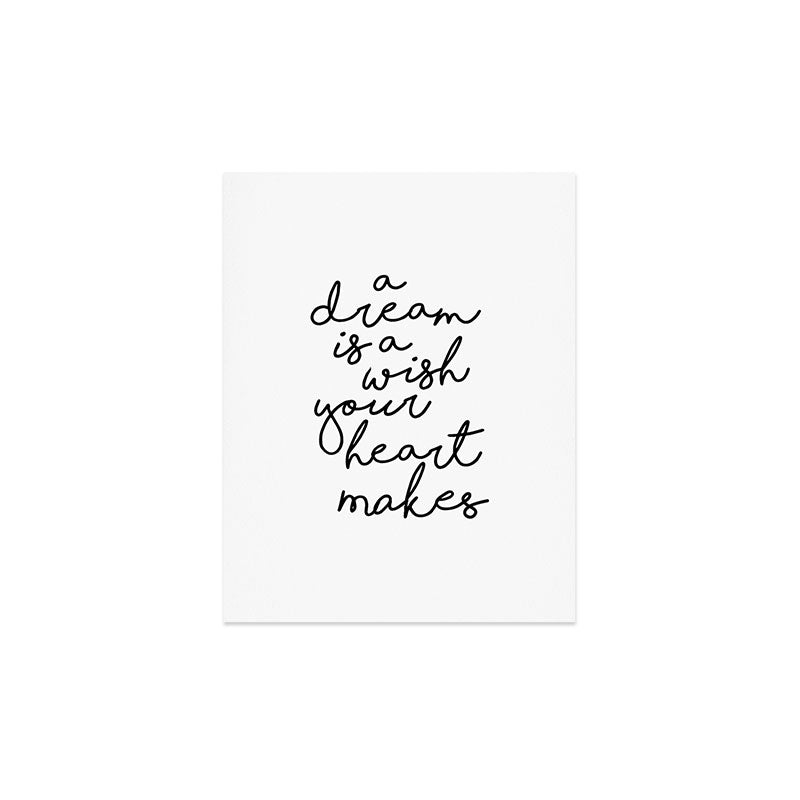 a
dream
is a
wish
your
heart
makes